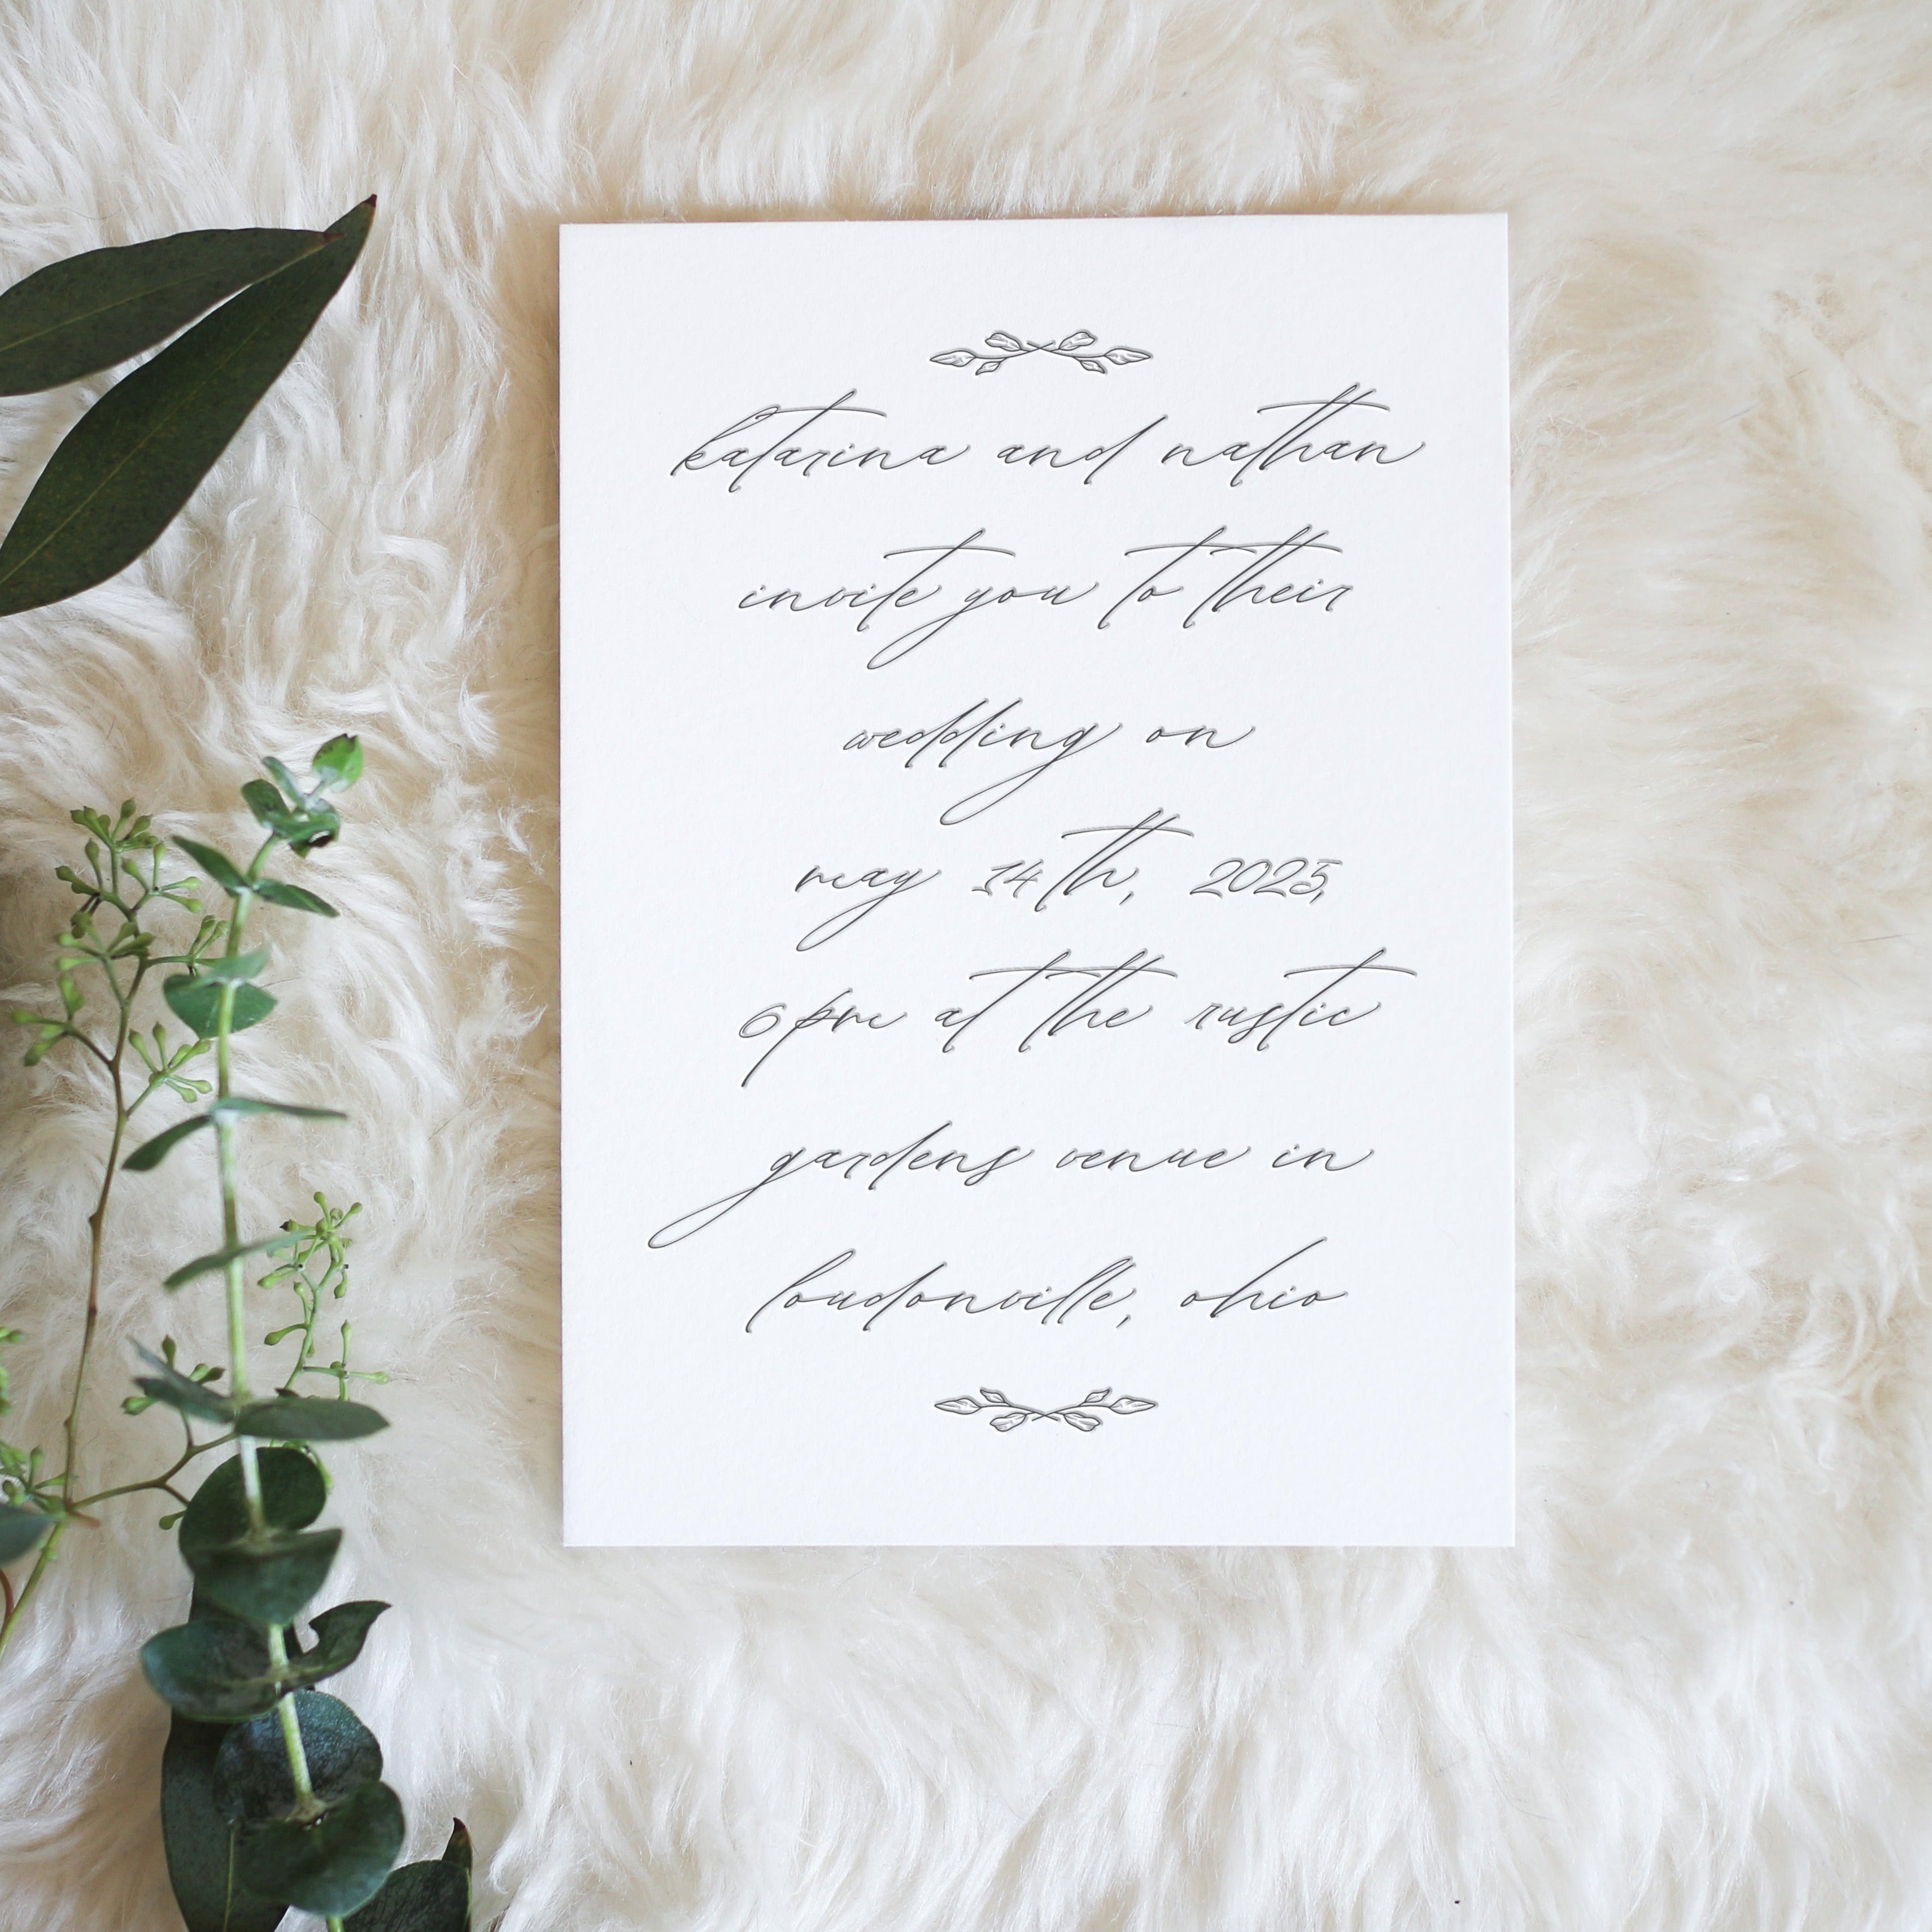 katarina and nathan
invite you to their
wedding on
may 14th, 2025,
6pm at the rustic
gardens venue in
loudonville, ohio